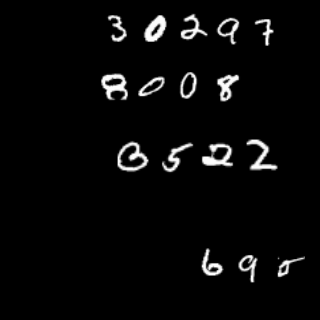 30297
8008
0522
690